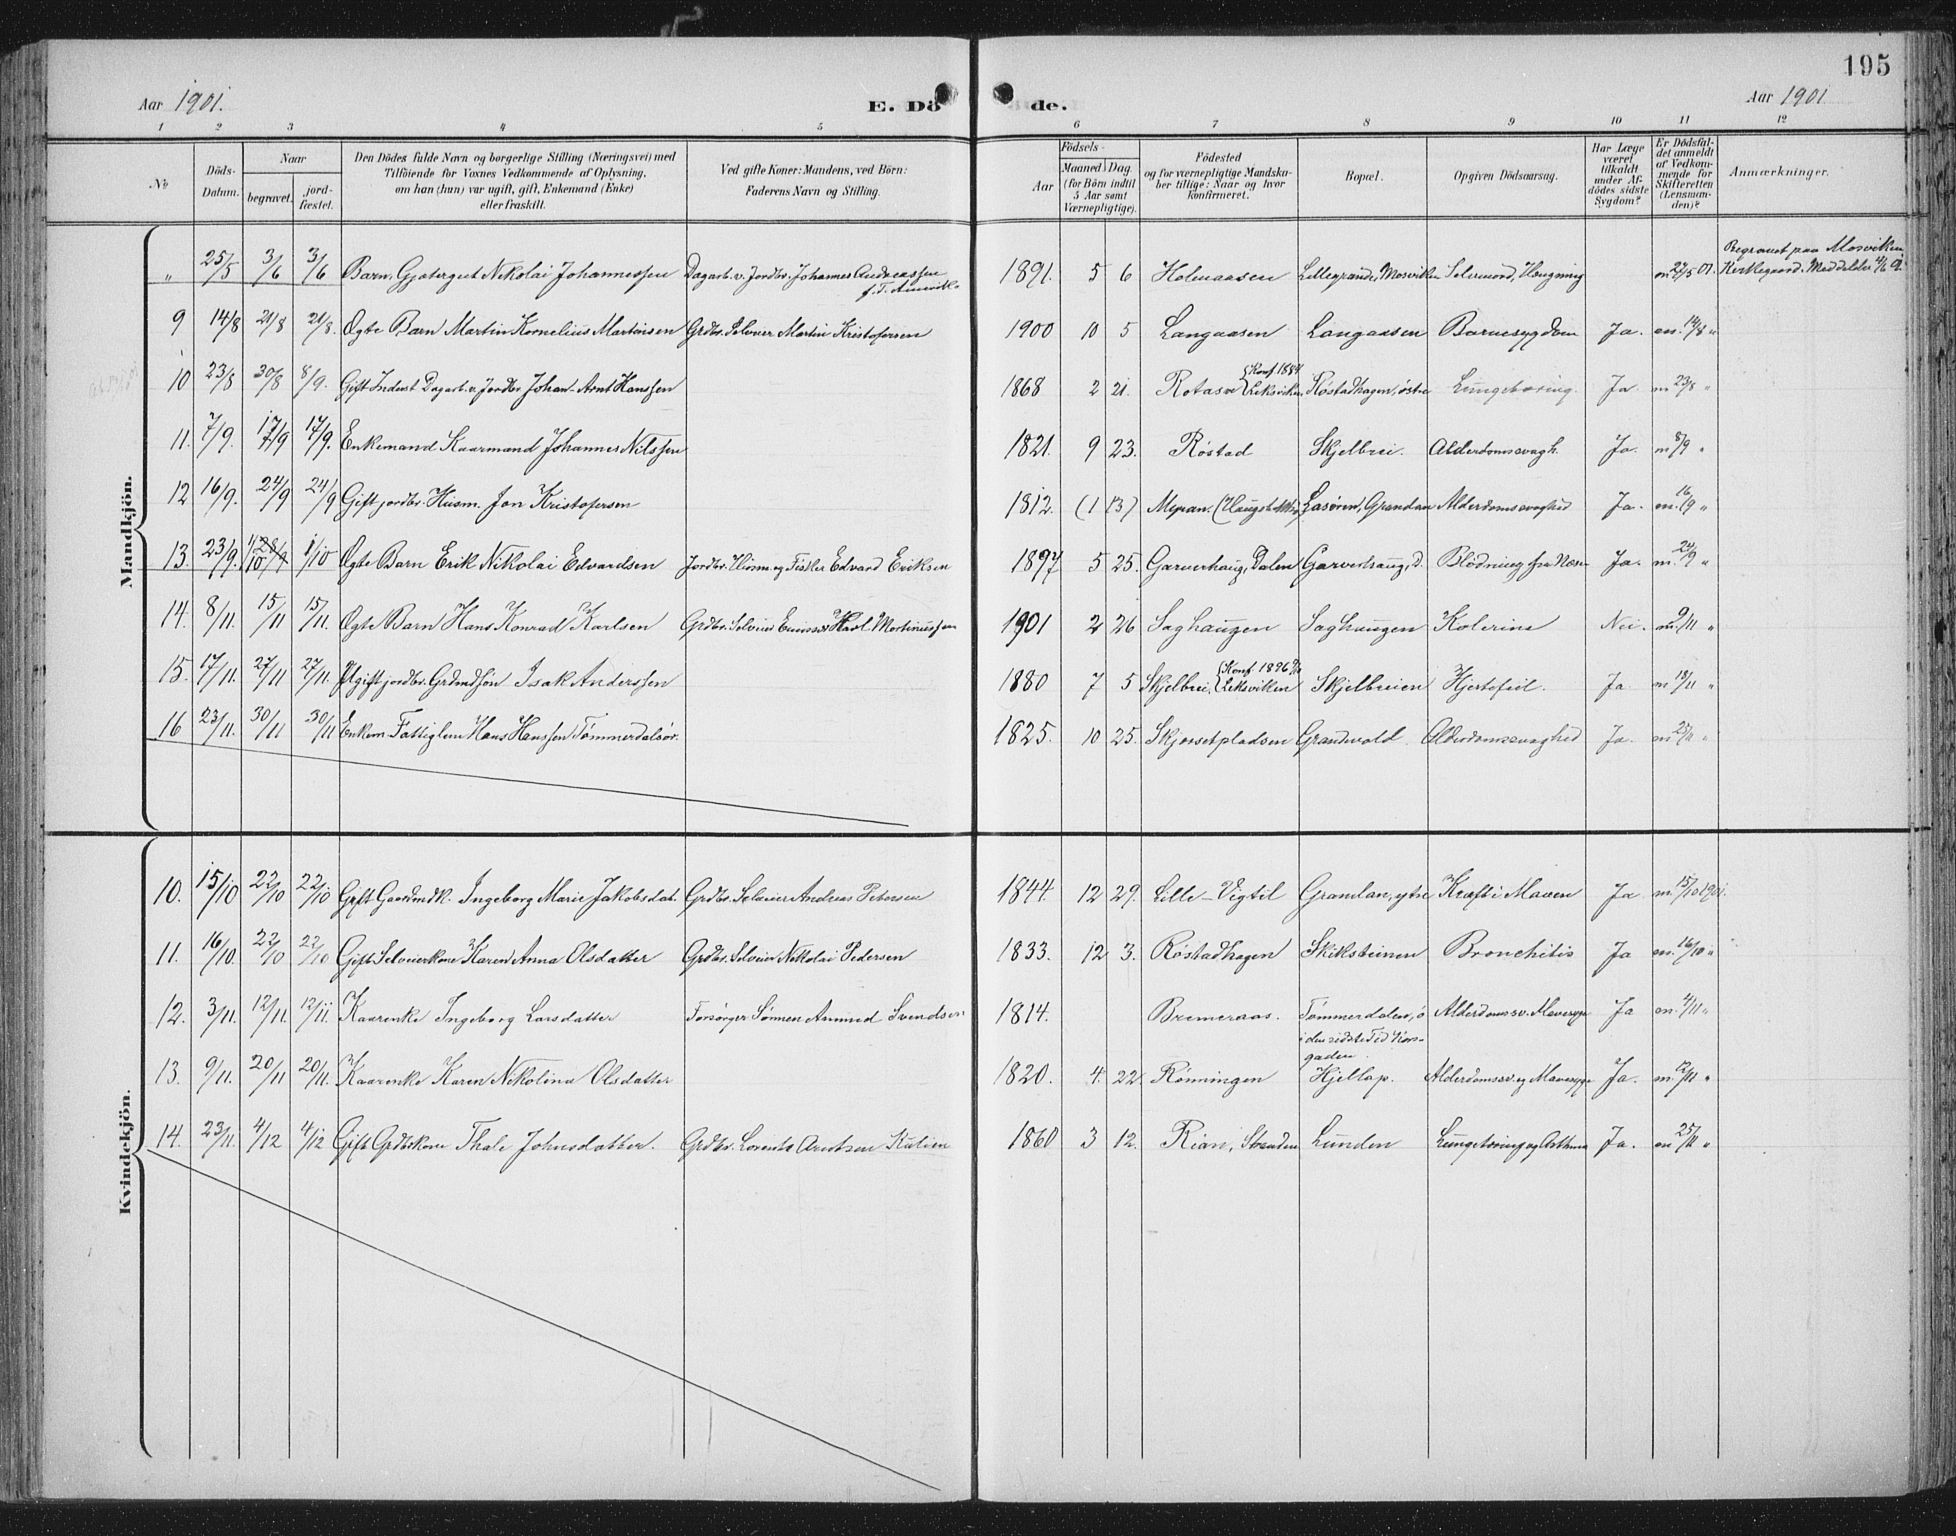 195
Aar 1901. E. Döde. Aar 1901
1 2 3 4 5 6 7 8 9 10 11 12
№
Döds-Datum.
Naar
begravet.
jord-fæstet.
Den Dödes fulde Navn og borgerlige Stilling (Næringsvei) med
Tilföiende for Voxnes Vedkommende af Oplysning,
om han (hun) var ugift, gift, Enkemand (Enke)
eller fraskilt.
Ved gifte Koner: Mandens, ved Börn:
Faderens Navn og Stilling.
Födsels-
Aar
Maaned Dag.
(for Börn indtil
5 Aar samt
Værnepligtige).
Födested
og for værnepligtige Mandska-
ber tillige: Naar og hvor
konfirmeret.
Bopæl.
Opgiven Dödsaarsag.
Har Læge
været
tilkaldt
under Af-
dödes sidste
Sygdom?
Er Dödsfal-
det anmeldt
af Vedkom-
mende for
Skifteretten
(Lensman-
den)?
Anmærkninger.
Mandkjön.
" 25/5 3/6 3/6 Barn, Gjætergut Nikolai Johannessen Dagarb. v. Jordbr. Johannes Andreassen 1891. 5 6 Holmaasen Lillegrande, Mosviken Selvmord, Hængning Begravet paa Mosviken
9 14/8 21/8 21/8. Ægte Barn Martin Kornelius Martinsen Grdbr. Selveier Martin Kristofersen 1900 10 5 Langaasen Langaasen Barnesygdom Ja. an. 14/8 "
10 23/8 30/8 8/9. Gift Inderst Dagarb. v. Jordbr. Johan Arnt Hanssen 1868 2 21. Rotasve {Konf. 1884 Leksviken Røstadhagen, østre Lungebetæring. Ja m 23/8 "
11. 7/9. 17/9 17/9. Enkemand Kaarmand Johannes Nilssen 1821. 9 23. Røstad Skjelbrei. Alderdomssvagh. Ja. m 8/9 "
12 16/9. 24/9 24/9 Gift jordbr. Husm. Jon Kristofersen 1812. (1 13) Myran. Lasøren, Grandan Alderdomssvaghed Ja. m. 16/9 "
13. 23/9. 1/10 1/10 Ægte Barn Erik Nikolai Edvardsen Jordbr. Husm. og Fisker Edvard Eriksen 1897 5 25. Garverhaug, Dalen Garverhaug, D. Blödning fra Næsen Ja. m. 24/9 "
14. 8/11. 15/11 15/11. Ægte Barn Hans Konrad Karlsen Grdbr. Selveier Karl Martinussen 1901 2 26 Saghaugen Saghaugen Kolerine Nei. m. 9/11 "
15. 17/11. 27/11 27/11. Ugift jordbr. Grdmdsøn Isak Anderssen 1880 7 5 Skjelbrei, {Konf. 1896 Leksviken Skjelbreien Hjertefeil. Ja. m 18/11 "
16 23/11. 30/11 30/11 Enkem. Fattiglem Hans Hanssen Tømmerdalsør. 1825. 10 25. Skjørsetpladsen Grandevold Alderdomssvaghed Ja. m 25/11 "
Kvindekjön.
10. 15/10 22/10 22/10 Gift Gaardmdk. Ingeborg Marie Jakobsdat. Grdbr. Selveier Andreas Petersen 1844. 12 29. Lille-Vigtil Grandan, ytre Kræft i Maven Ja m. 15/10 1901.
11. 16/10. 22/10 22/10 Gift Selveierkone Karen Anna Olsdatter Grdbr. Selveier Nikolai Pedersen 1833. 12 3. Røstadhagen Skiksteinen Bronchitis Ja m. 16/10 "
12. 3/11. 12/11 12/11. Kaarenke Ingeborg Larsdatter Forsørger Sönnen Ammud Svendsen 1814. Bremeraas. Tømmerdalen, ö Alderdomssv. Mavesyge Ja m. 4/11 "
i den sidste Tid
13. 9/11. 20/11 20/11. Kaarenke Karen Nikolina Olsdatter 1820. 4. 22. Rønningen Hjellup. Alderdomssv. og Mavesyge Ja. m. 12/11 "
14. 23/11. 4/12 4/12 Gift Grdbrkone Thale Johnsdatter. Grdbr. Lorents Arntsen 1860 3 12. Rian, Stranden Lunden Lungebetæring og Asthma Ja. m 25/11 "